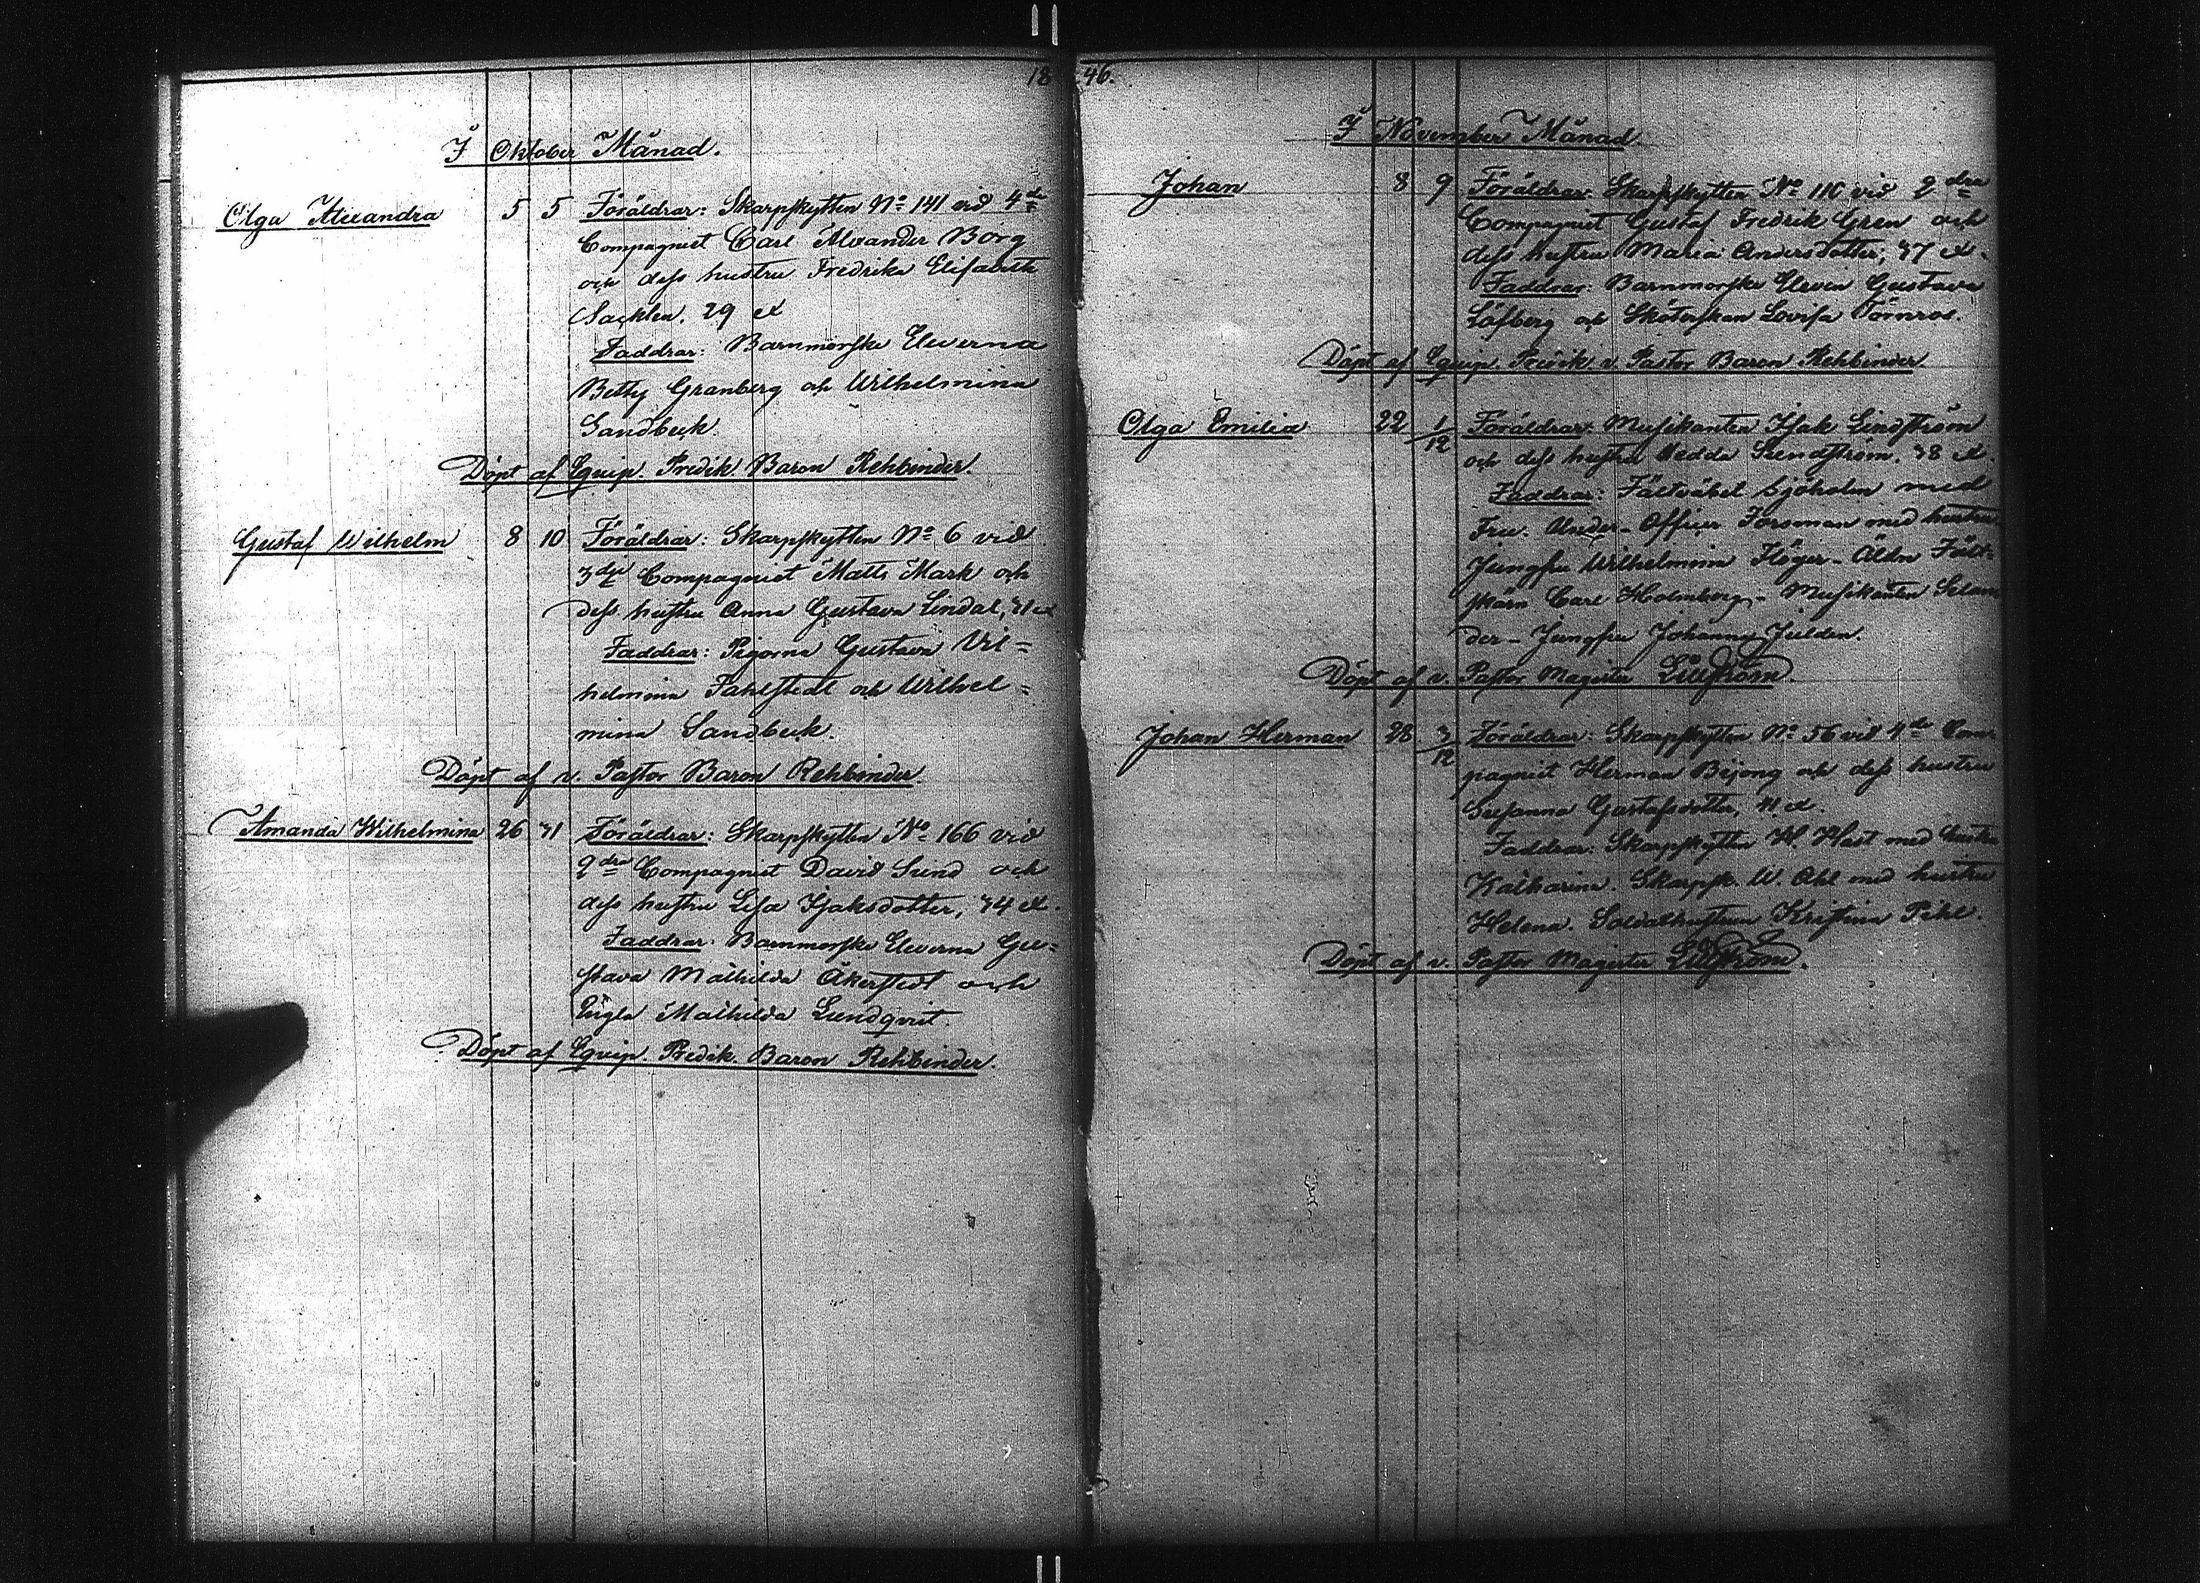 1846.
I Oktober Månad.
Olga Alexandra 5 5 Föräldrar: Skarpskytten No 141 vid 4de
Compagniet Carl Alexander Borg
och dess hustru Fredrika Elisabeth
Sacklen, 29 
Faddrar: Barnmorske Eleverna
Betty Granberg och Wilhelmina
Sandbeck.
Döpt af Equip. Predik Baron Rehbinder.
Gustaf Wilhelm 8 10 Föräldrar: Skarpskytten No 6 vid
3dje Compagniet Matts Mark och
dess hustru Anna Gustava Lindal, 31
Faddrar: Pigorna Gustava Vil=
helmina Fahlstedt och Wilhel=
mina Sandbeck.
Döpt af v. Pastor Baron Rehbinder
Amanda Wilhelmina 26 31 Föräldrar: Skarpskytten No 166 vid
2dra Compagniet David Sund och
dess hustru Lisa Isaksdotter, 34
Faddrar: Barnmorske Eleverna Gu=
stava Mathilda Åkerstedt och
Mathilda Lundqvist.
Döpt af Equip. Predik. Baron Rehbinder.
I November Månad.
Johan 8 9 Föräldrar: Skarpskytten No 110 vid 2dra
Compagniet Gustaf Fredrik Gren och
dess hustru Maria Andersdotter, 37
Faddrar: Barnmorske Eleven Gustava
Löfberg och Sköterskan Lovisa Törnros.
Döpt af Equip. Predik. v. Pastor Baron Rehbinder.
Olga Emilia 22 1/12 Föräldrar: Musikanten Isak Lindström
och dess hustru Hedda 38
Faddrar: Fältväbel Sjöholm med
Fru. Under-Officer Forsman med hustru
Jungfru Wilhelmina Höger - Fält=
skärn Carl Holmberg - Musikanten Selan
der - Jungfru Johanna
Döpt af v. Pastor Magister Lillström.
Johan Herman 28 3/12 Föräldrar: Skarpskytten No 56 vid 4de Com
pagniet Herman och dess hustru
Susanna Gustafsdotter, 41
Faddrar: Skarpskytten H. Hast med hustru
Katharina. Skarpsk. W. Ahl med hustru
Helena. Soldathustrun Kristina Pihl.
Döpt af v. Pastor Magister Lillström.